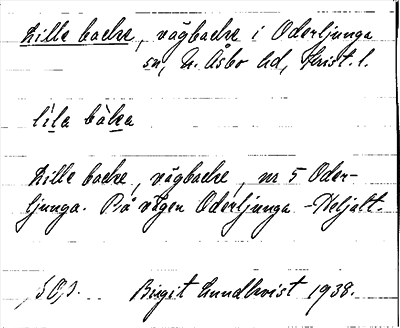 Lille backe, vägbacke i Oderljunga
sn, N. Åsbo hd, Krist. l.
lila bàka
Lille backe, vägbacke, nr 5 Oder-
ljunga. På vägen Oderljunga - Heljalt.
Birgit Lundkvist 1938.